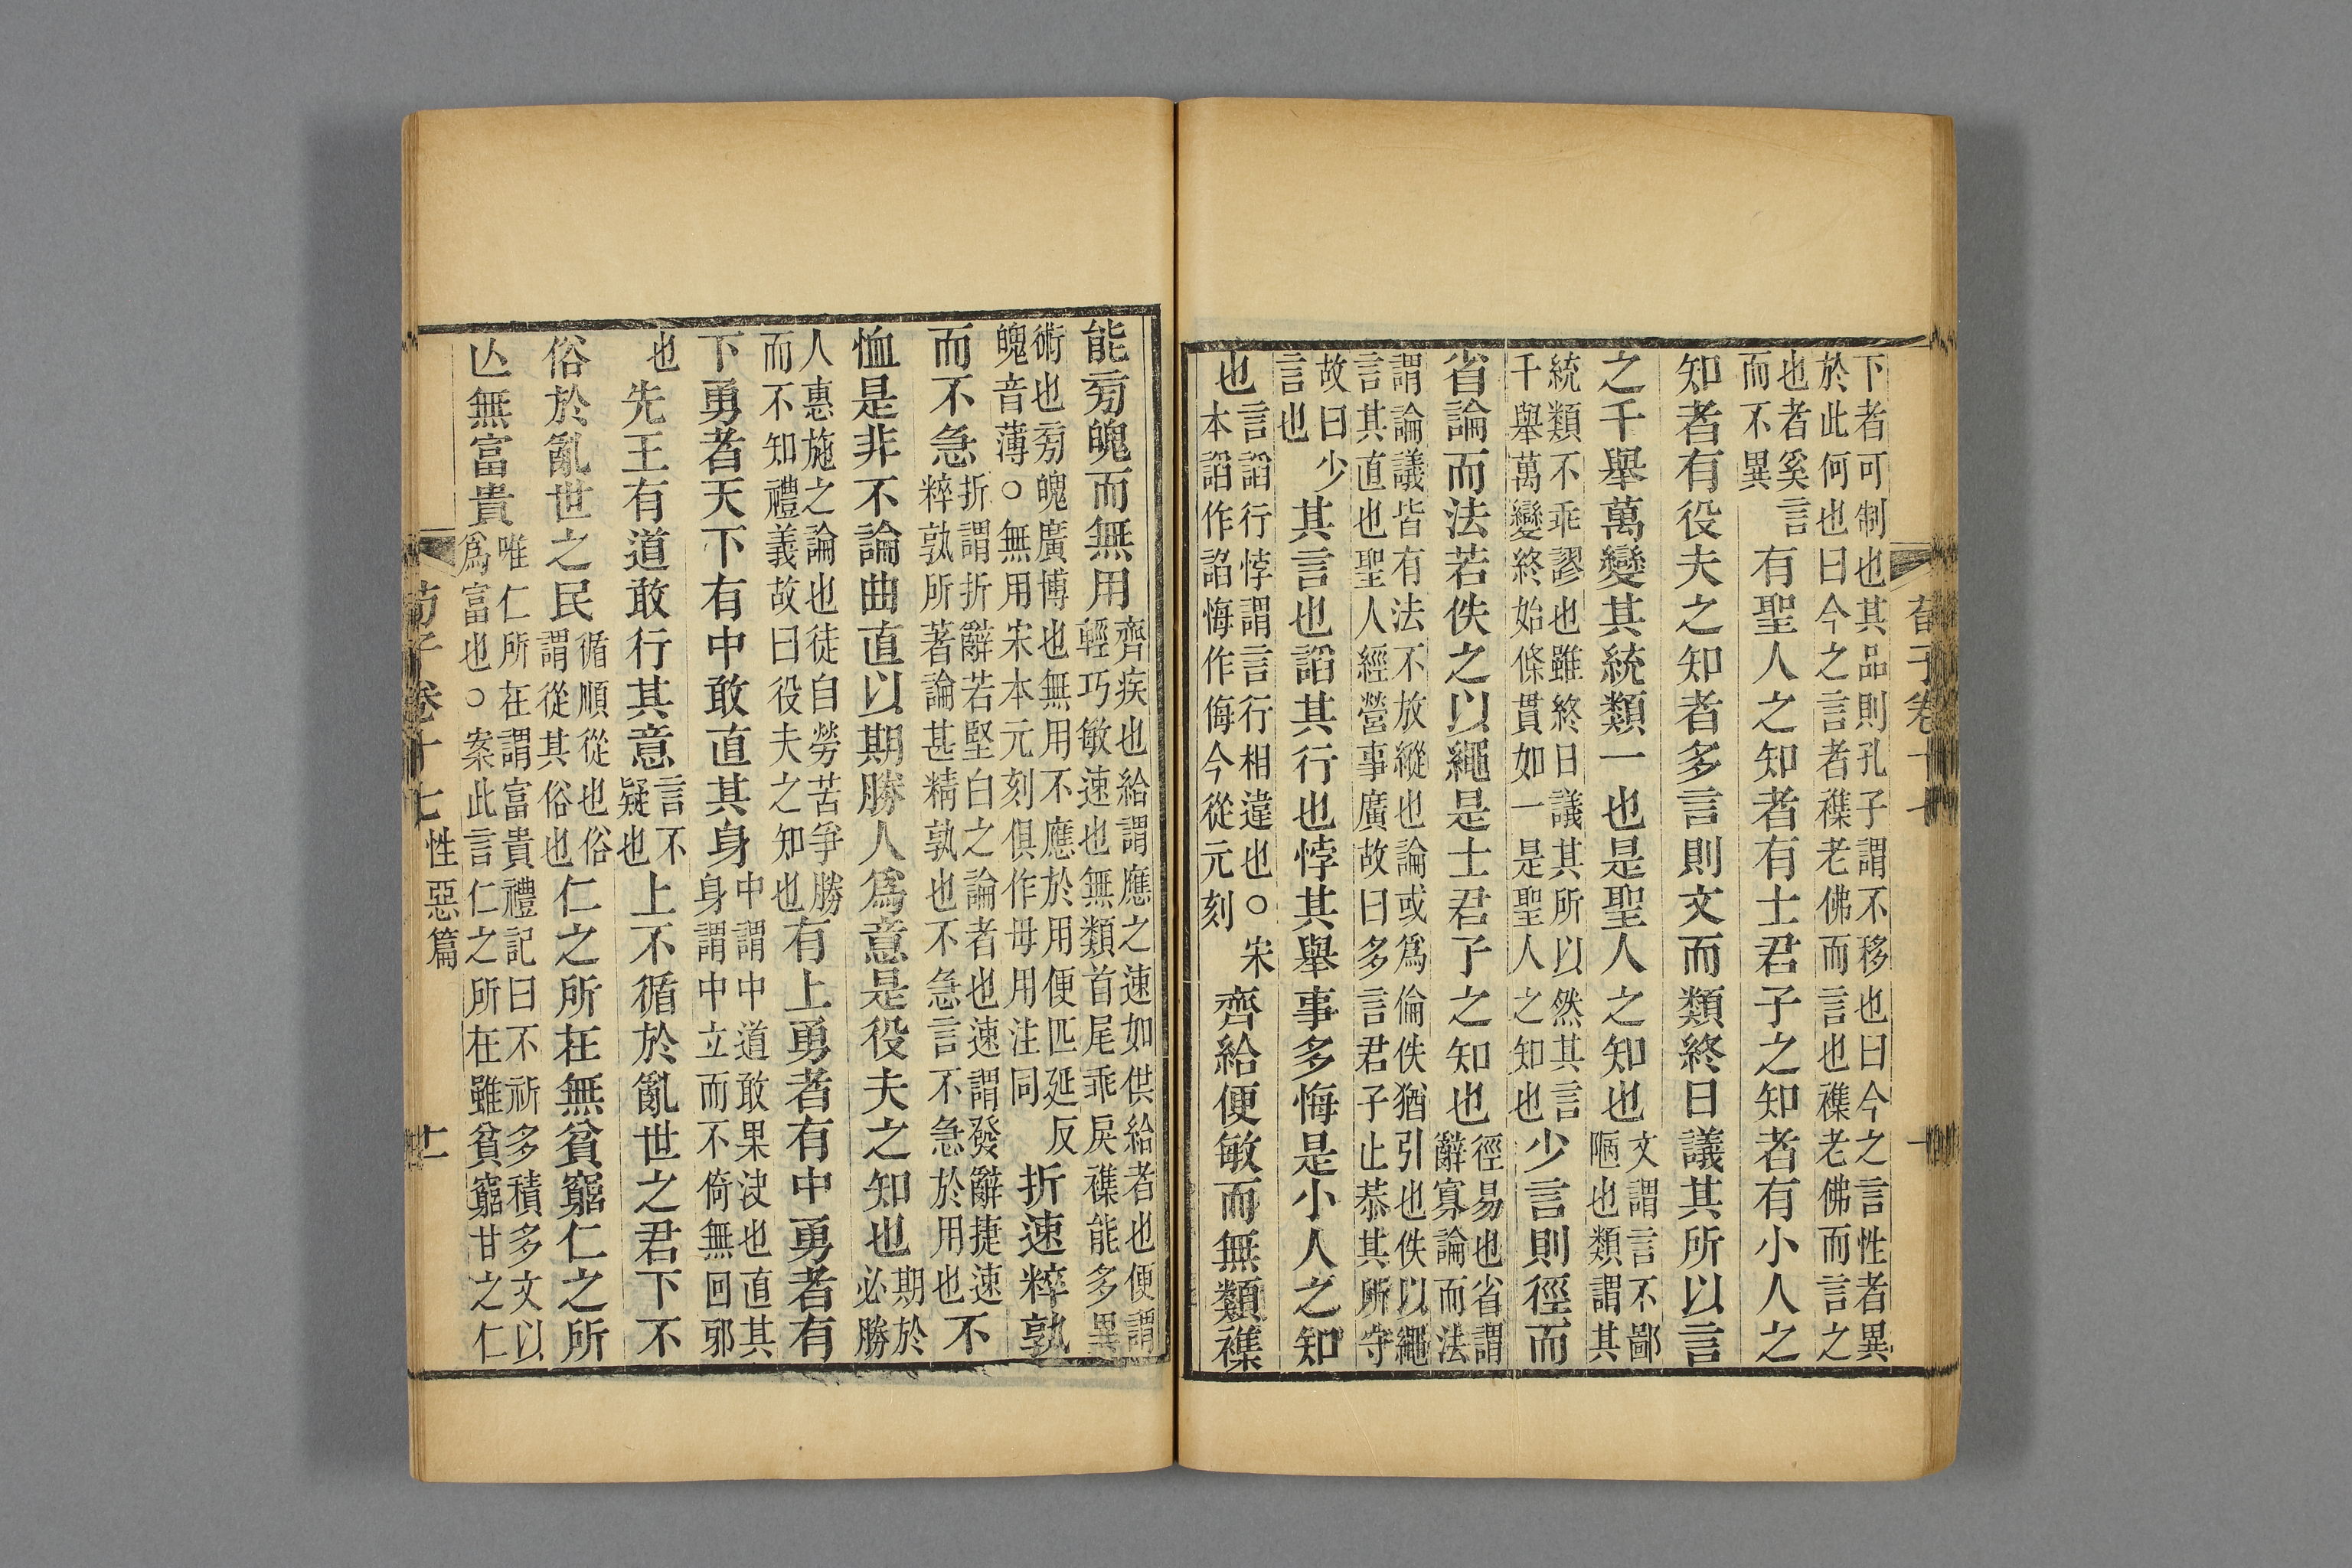 下者可制也其品則孔子謂不移也曰今之言性者異
於此何也曰今之言者襍老佛而言也襍老佛而言之
也者奚言
而不異
有聖人之知者有士君子之知者有小人之
知者有役夫之知者多言則文而類終日議其所以言
之千舉萬變其統類一也是聖人之知也
文謂言不鄙
陋也類謂其
統類不乖謬也雖終日議其所以然其言
千舉萬變終始條貫如一是聖人之知也
少言則徑而
省論而法若佚之以繩是士君子之知也
徑易也省謂
辭寡論而法
謂論議皆有法不放縱也論或爲倫佚猶引也佚以繩
言其直也聖人經營事廣故曰多言君子止恭其所守
故曰少
言也
其言也謟其行也悖其舉事多悔是小人之知
也
言謟行悖謂言行相違也○宋
本謟作諂悔作侮今從元刻
齊給便敏而無類襍
荀子卷十七
能㫄魄而無用
齊疾也給謂應之速如供給者也便謂
輕巧敏速也無類首尾乖戾襍能多異
術也㫄魄廣博也無用不應於用便匹延反
魄音薄○無用宋本元刻俱作毋用注同
折速粹孰
而不急
折謂折辭若堅白之論者也速謂發辭捷速
粹孰所著論甚精孰也不急言不急於用也
不
恤是非不論曲直以期勝人爲意是役夫之知也
期於
必勝
人惠施之論也徒自勞苦爭勝
而不知禮義故曰役夫之知也
有上勇者有中勇者有
下勇者天下有中敢直其身
中謂中道敢果決也直其
身謂中立而不倚無回邪
也
先王有道敢行其意
言不
疑也
上不循於亂世之君下不
俗於亂世之民
循順從也俗
謂從其俗也
仁之所在無貧窮仁之所
亾無富貴
唯仁所在謂富貴禮記曰不祈多積多文以
爲富也○案此言仁之所在雖貧窮甘之仁
荀子卷十七
性惡篇
十一